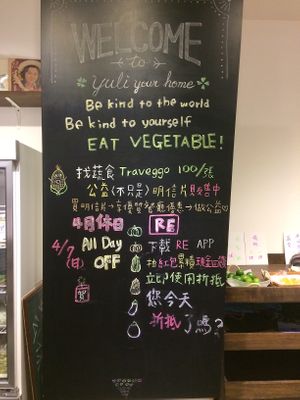 WELCOME
to
yuli your home
Be kind to the world
Be kind to yourself
EAT VEGETABLE!
找蔬食 Traveggo 100/張
公益(不只是)明信片販售中
買明信片→享優質餐廳優惠→做公益♡
4月休日
4/7 All Day
(日) OFF
RE
下載 RE APP
抽紅包累積現金回饋
立即使用折抵
您今天
折抵了嗎?